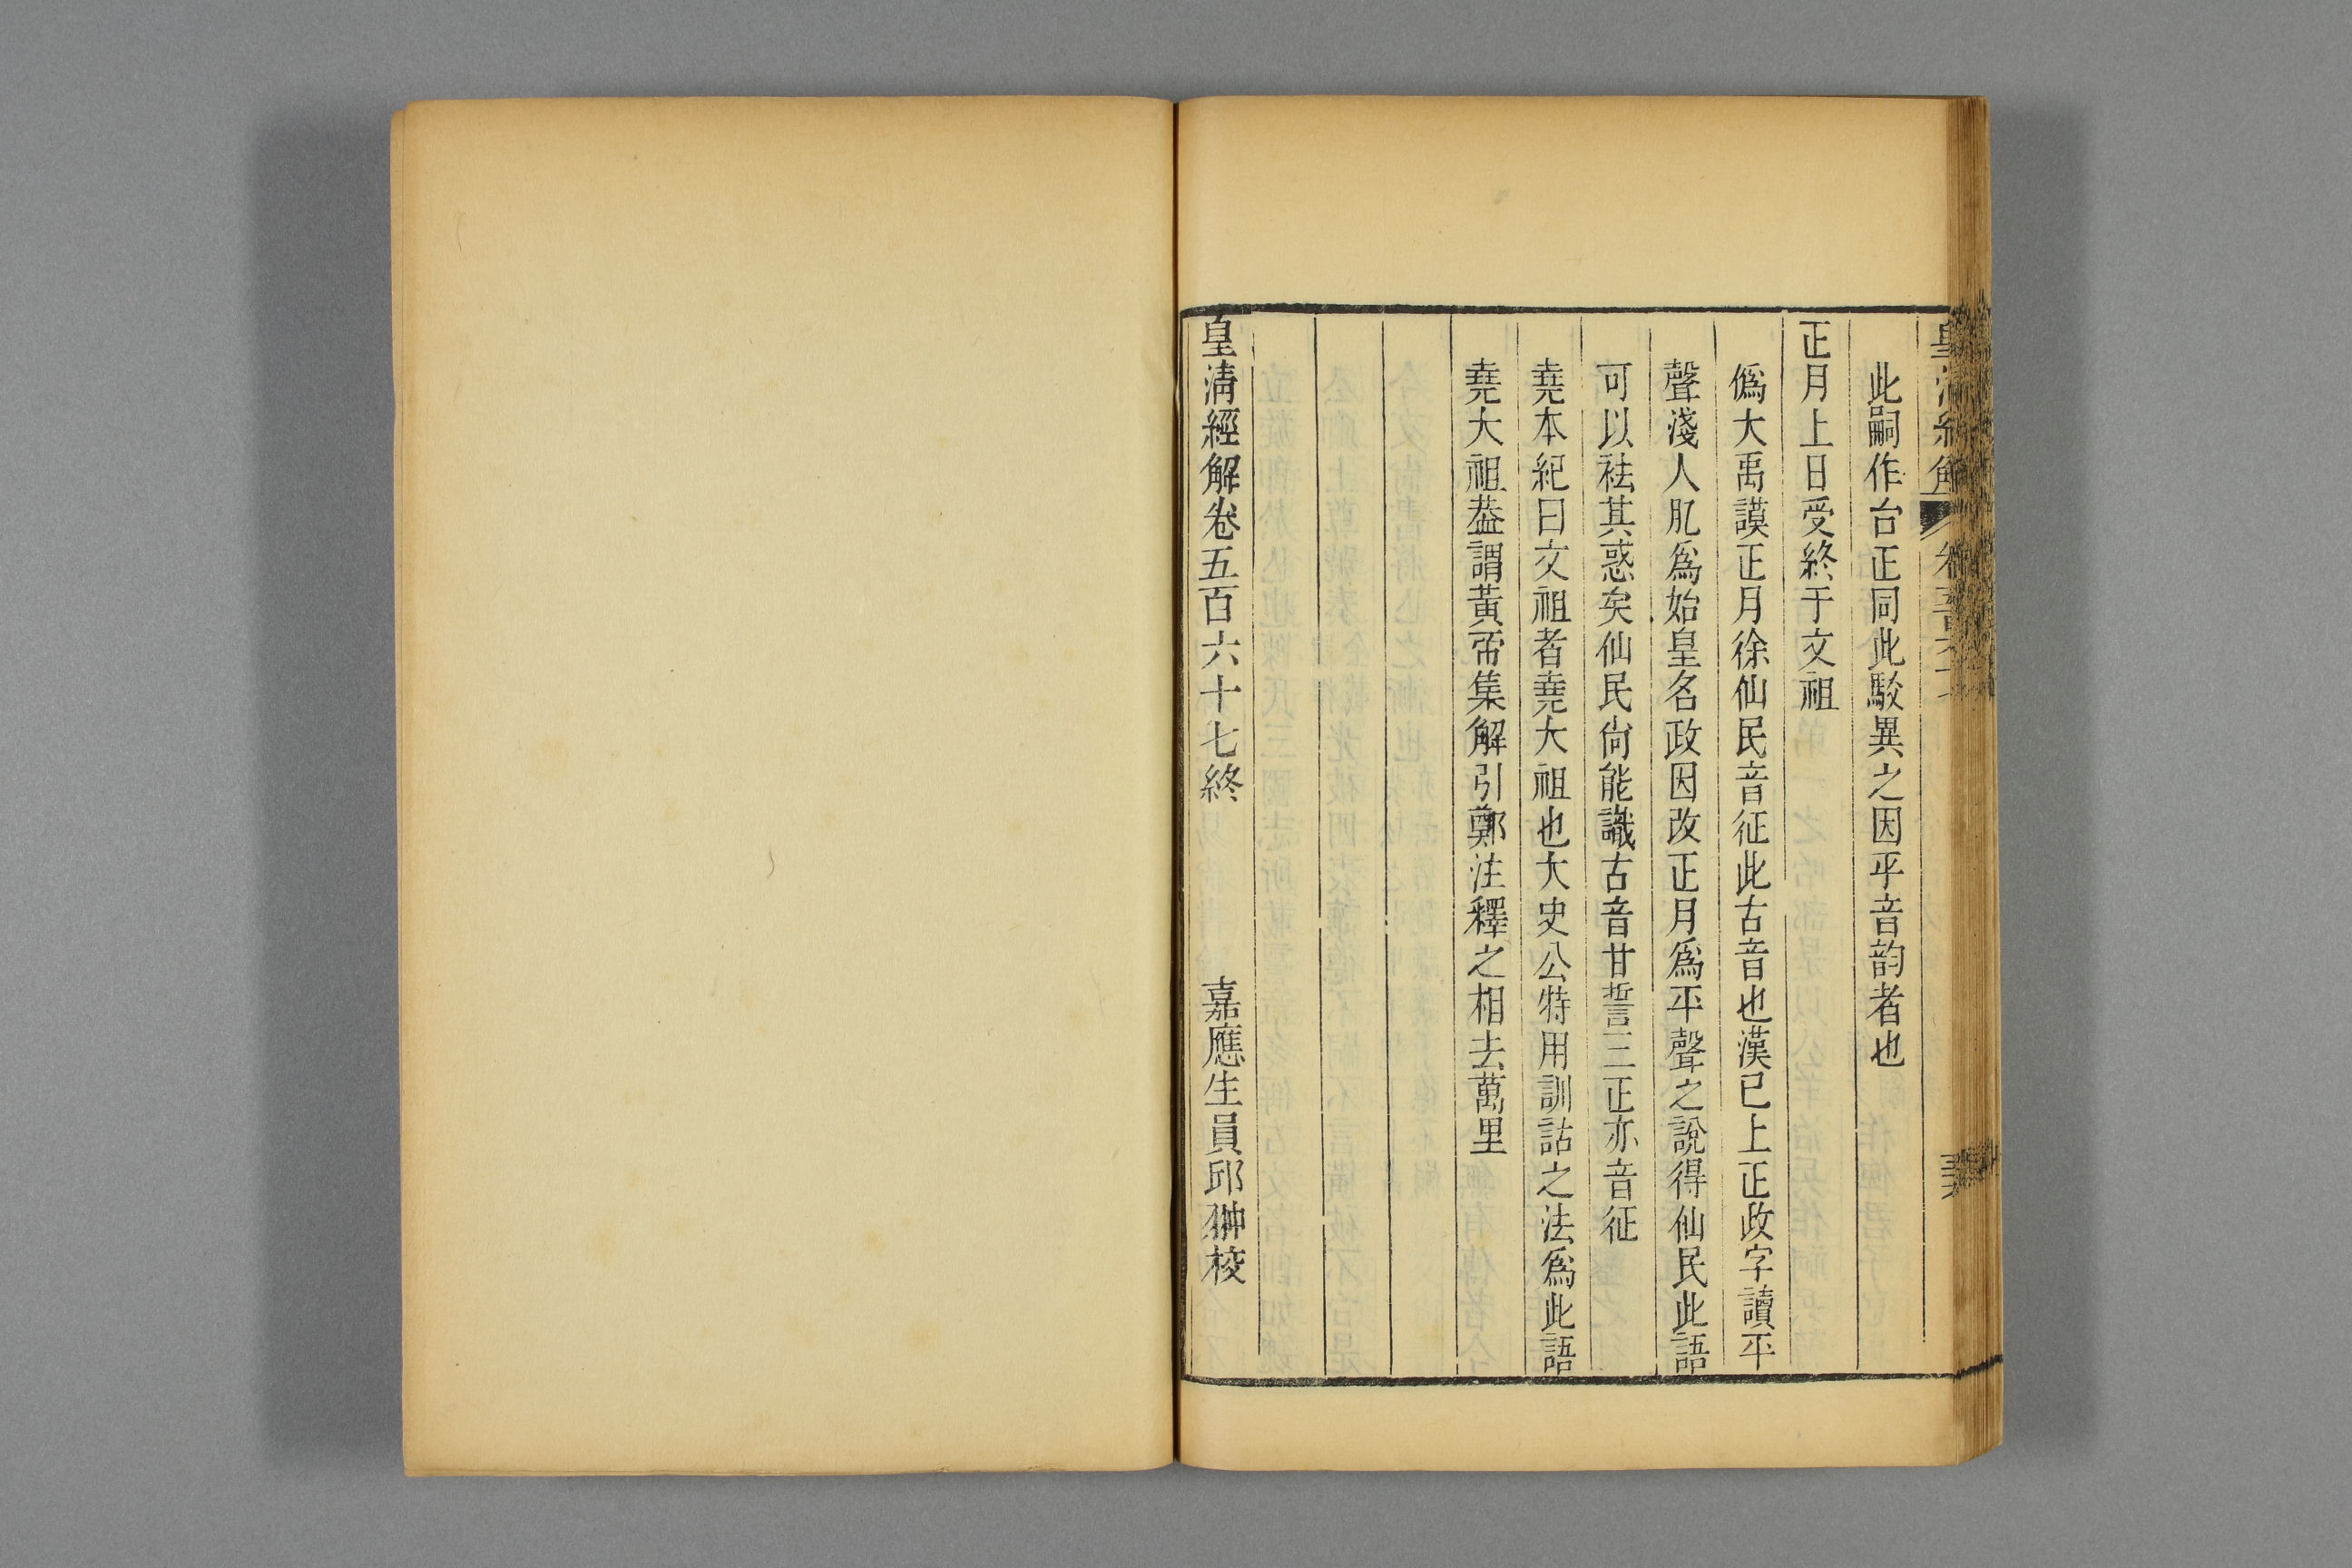 皇清經解 卷五百六十七
此嗣作台正同此駮異之因乎音韵者也
正月上日受終于文祖
僞大禹謨正月徐仙民音征此古音也漢已上正政字讀平
聲淺人肊爲始皇名政因改正月爲平聲之說得仙民此語
可以袪其惑矣仙民尙能識古音甘誓三正亦音征
堯本紀曰文祖者堯大祖也大史公特用訓詁之法爲此語
堯大祖葢謂黃帝集解引鄭注釋之相去萬里
皇清經解卷五百六十七終 嘉應生員邱翀校